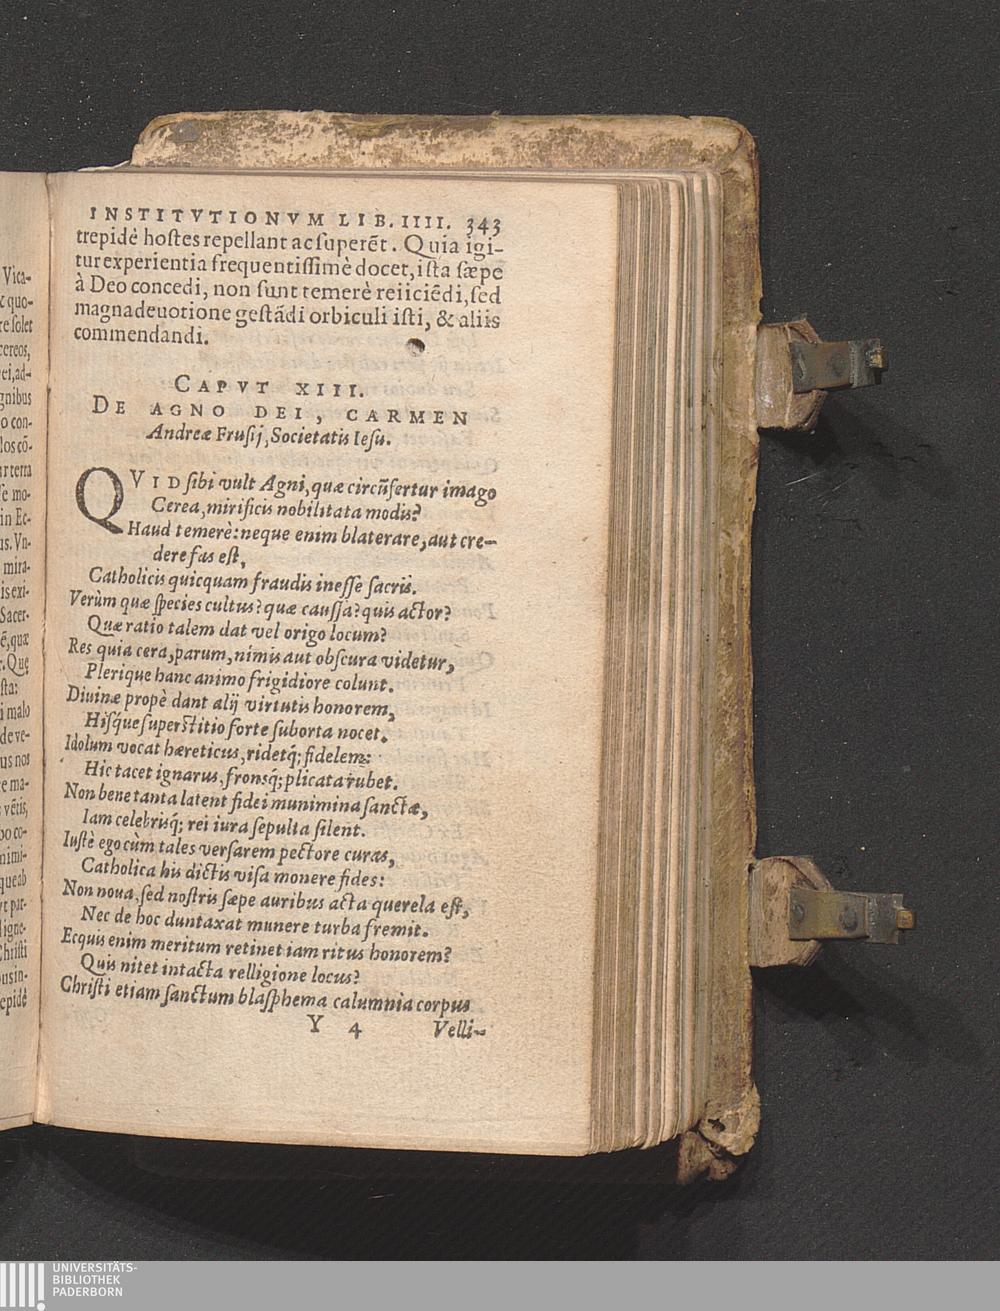 INSTITVTIONVM LIB. IIII. 343
trepidè hostes repellant ac superēt. Quia igi-
tur experientia frequentissimè docet, ista sæpe
à Deo concedi, non sunt temerè reiiciēdi, sed
magna deuotione gestādi orbiculi isti, & aliis
commendandi.
CAPVT XIII.
DE AGNO DEI, CARMEN
Andreæ Frusij, Societatis Iesu.
QVID sibi vult Agni, quæ circūfertur imago
Cerea, mirificis nobilitata modis?
Haud temerè: neque enim blaterare, aut cre-
dere fas est,
Catholicis quicquam fraudis inesse sacris.
Verùm quæ species cultus? quæ caussa? quis actor?
Quæ ratio talem dat vel origo locum?
Res quia cera, parum, nimis aut obscura videtur,
Plerique hanc animo frigidiore colunt.
Diuinæ propè dant alij virtutis honorem,
Hisq́ue superstitio forte suborta nocet.
Idolum vocat hæreticus, ridetq́; fidelem:
Hic tacet ignarus, fronsq́; plicata rubet.
Non bene tanta latent fidei munimina sanctæ,
Iam celebrisq́; rei iura sepulta silent.
Iustè ego cùm tales versarem pectore curas,
Catholica his dictis visa monere fides:
Non noua, sed nostris sæpe auribus acta querela est,
Nec de hoc duntaxat munere turba fremit.
Ecquis enim meritum retinet iam ritus honorem?
Quis nitet intacta relligione locus?
Christi etiam sanctum blasphema calumnia corpus
Y 4 Velli-
Vica-
quo-
re solet
cereos,
ei, ad-
gnibus
o con-
los cō-
ur terra
se mo-
in Ec-
us. Vn-
mira-
is exi-
Sacer-
ē, quæ
. Quę
sta:
i malo
de ve-
us nos
e ma-
vētis,
po co-
nimi-
que ab
vt par-
igne-
Christi
ousin-
epidè
UNIVERSITÄTS-
BIBLIOTHEK
PADERBORN